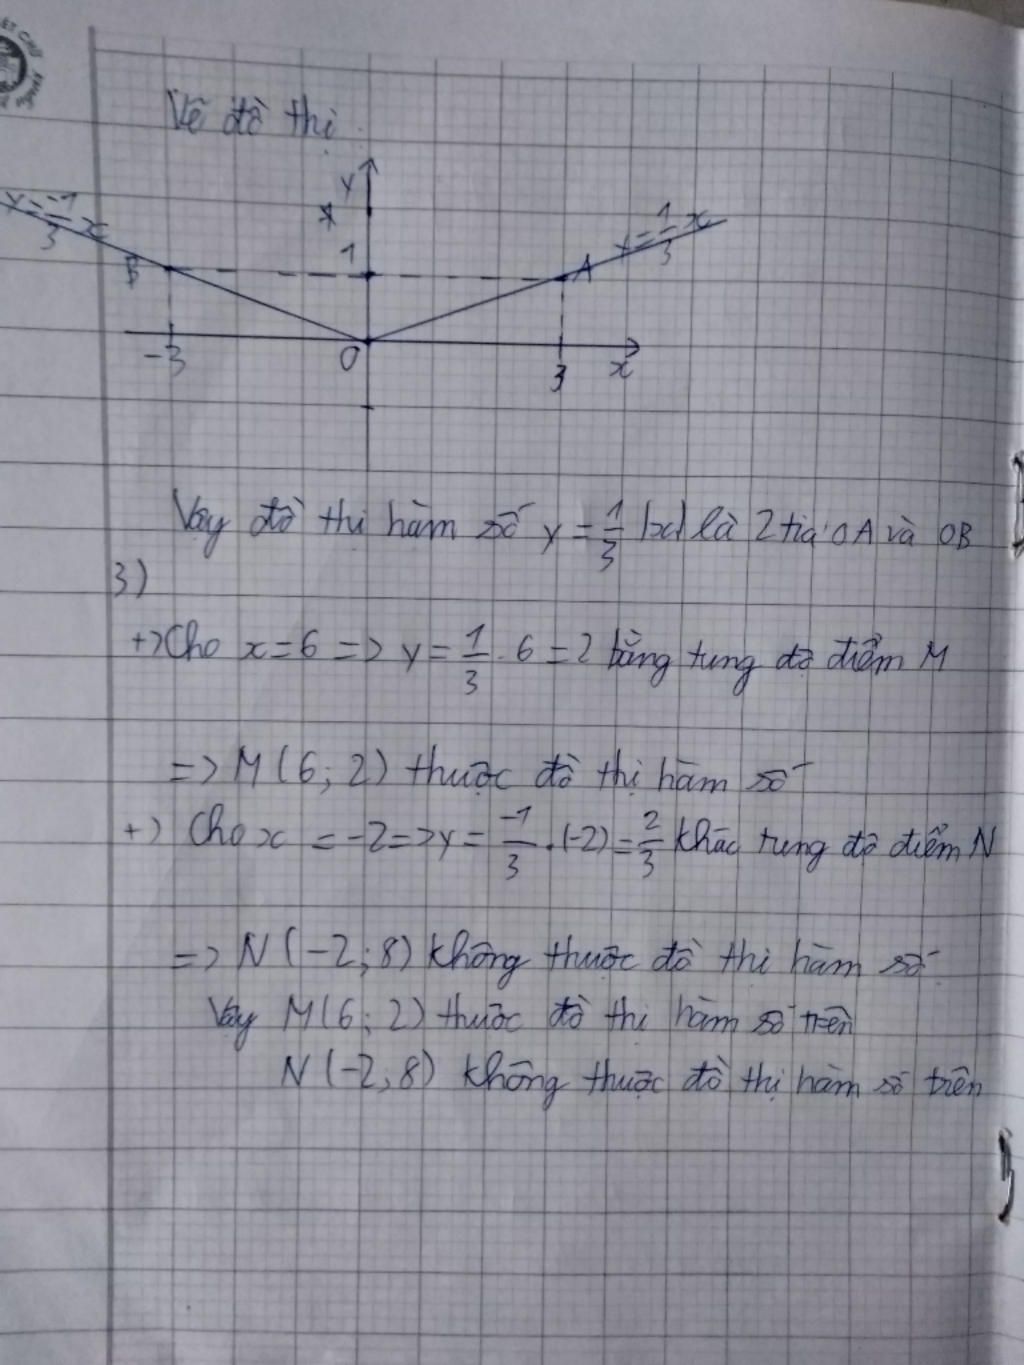 Vẽ đồ thị
y
y = -1/3 x
y = 1/3 x
B
1
A
-3
O
3
x
Vậy đồ thị hàm số y = 1/3 |x| là 2 tia OA và OB
3)
+) Cho x = 6 => y = 1/3 . 6 = 2 bằng tung độ điểm M
=> M (6; 2) thuộc đồ thị hàm số
+) Cho x = -2 => y = -1/3 . (-2) = 2/3 khác tung độ điểm N
=> N (-2; 8) không thuộc đồ thị hàm số
Vậy M(6; 2) thuộc đồ thị hàm số trên
N (-2; 8) không thuộc đồ thị hàm số trên